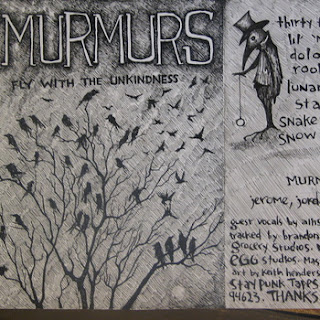 MURMURS
FLY WITH THE UNKINDNESS
thirty
lil'
dolo
roo
lunar
sta
snake
snow
MURM
jerome, jord
guest vocals by
tracked by brandon
grocery studios.
EGG studios. May
art by keith hender
stay punk Tapes
94623. THANKS